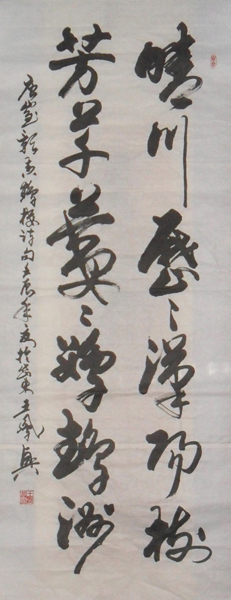 晴川歷〻漢陽樹
芳草萋〻鸚鵡洲
唐崔顥黃鶴樓詩句壬辰年